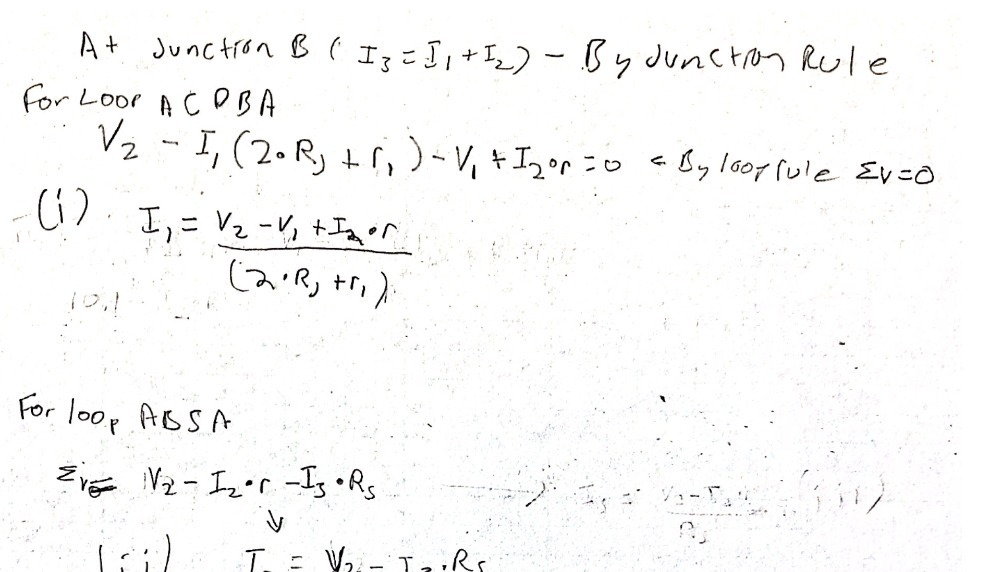 At Junction B ( I₃ = I₁ + I₂) - By Junction Rule
For Loop ACDBA
V₂ - I₁ (2∘Rⱼ + r₁) - V₁ + I₂∘r = 0 ← By loop rule Σv=0
(i) I₁ = V₂ - V₁ + I₂∘r
(2·Rⱼ + r₁)
10.1
For loop ABSA
V₂ - I₂·r - I₃·Rₛ
(ii) = V₂ - I₃·Rₛ